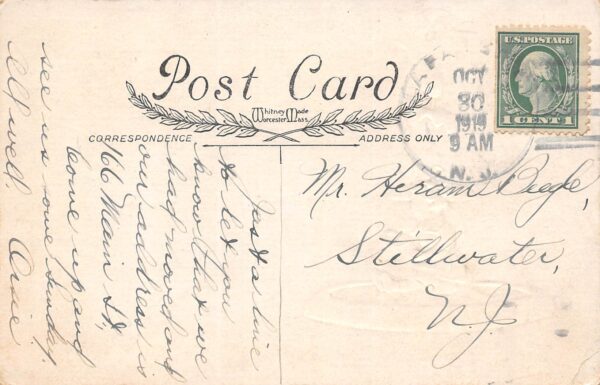 Post Card
Whitney Made
Worcester, Mass.
CORRESPONDENCE
ADDRESS ONLY
U.S. POSTAGE
1 CENT 1
OCT
30
9 AM
N. J.
Mr. Hiram
Stillwater,
N.J.
Just a line
to let you
know that we
had moved and
our address is
Main St,
Come up and
see us some Sunday.
All well.